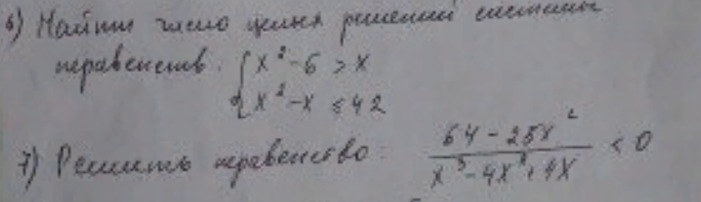 6) Найти число целых решений системы
неравенств. { x² - 6 > x
x² - x ≤ 42
7) Решить неравенство: (64 - 25x²) / (x³ - 4x² + 4x) < 0